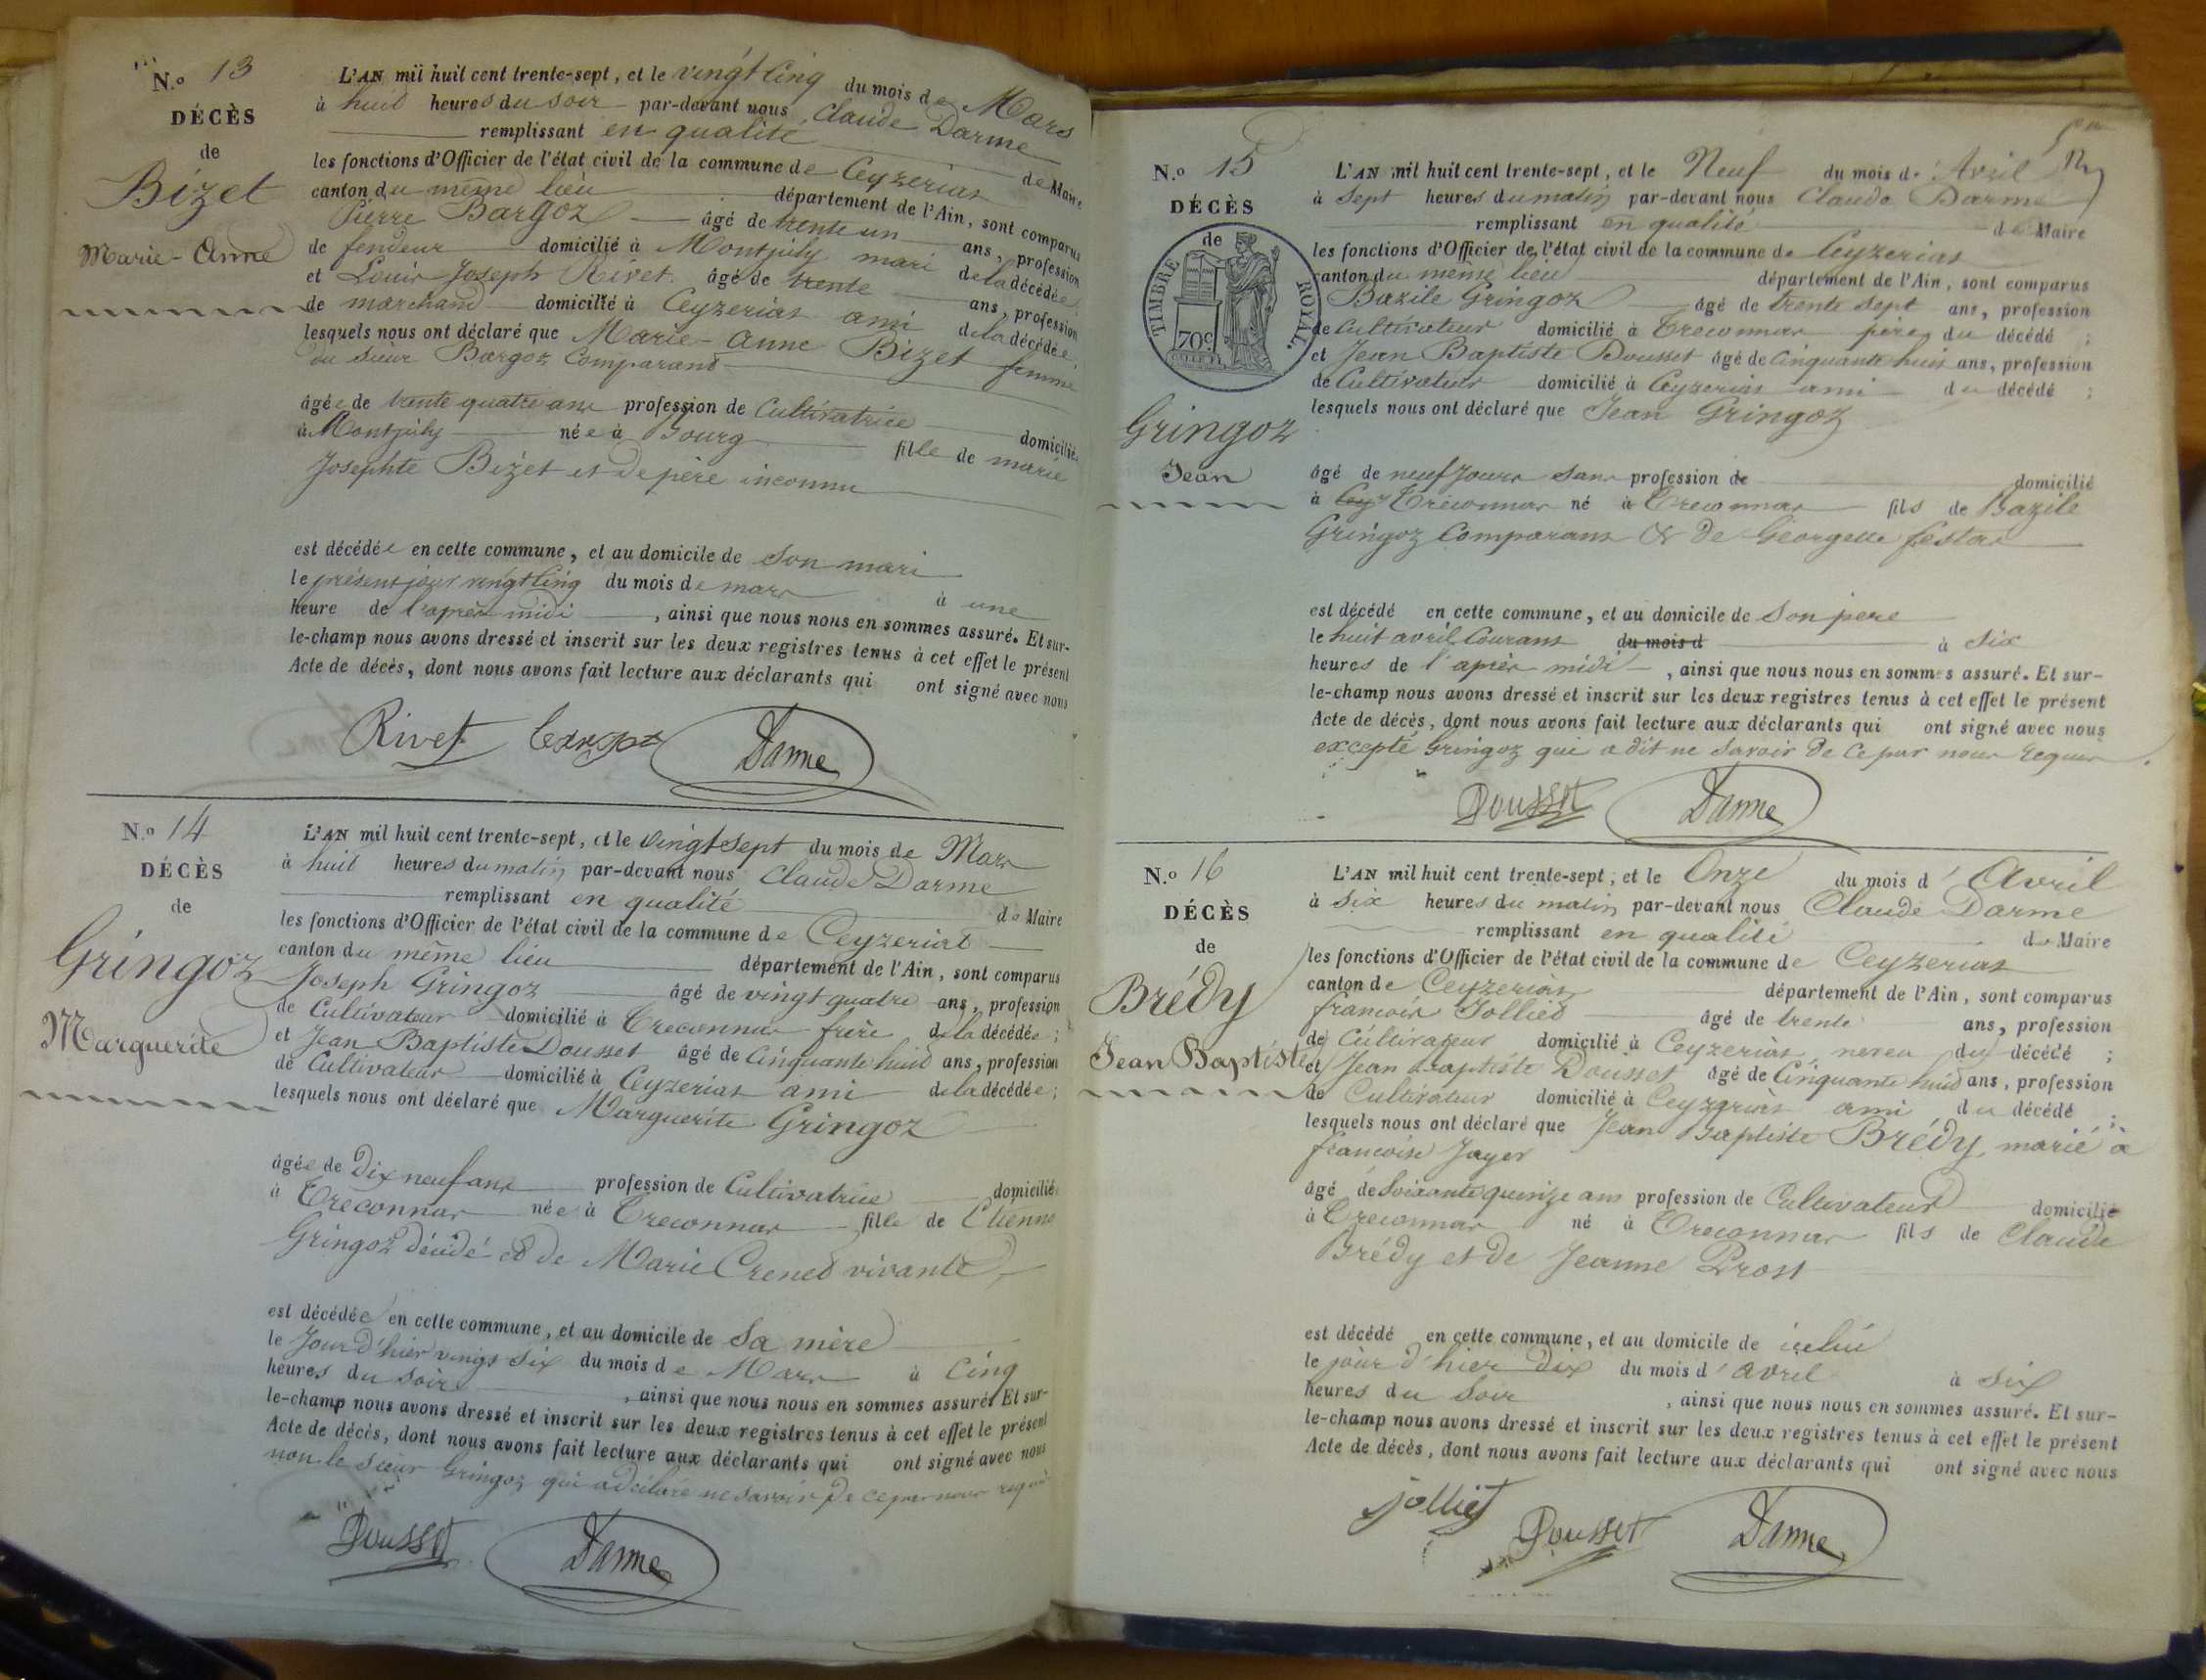 N.o 13
DÉCÈS
de
Bizet
Marie-Anne
L'AN mil huit cent trente-sept, et le vingt cinq du mois de Mars
à huit heures du soir par-devant nous Claude Darme
remplissant en qualité de Maire
les fonctions d'Officier de l'état civil de la commune de Ceyzeriat
canton du même lieu département de l'Ain, sont comparus
Pierre Bargoz âgé de trente un ans, profession
de fendeur domicilié à Montjuly mari de la décédée
et Louis Joseph Rivet âgé de trente ans, profession
de marchand domicilié à Ceyzeriat ami de la décédée
lesquels nous ont déclaré que Marie-Anne Bizet femme
du sieur Bargoz Comparant
âgée de trente quatre ans profession de Cultivatrice domiciliée
à Montjuly née à Bourg fille de marie
Josephte Bizet et de père inconnu
est décédée en cette commune, et au domicile de son mari
le présent jour vingt cinq du mois de mars à une
heure de l'après midi, ainsi que nous nous en sommes assuré. Et sur-
le-champ nous avons dressé et inscrit sur les deux registres tenus à cet effet le présent
Acte de décès, dont nous avons fait lecture aux déclarants qui ont signé avec nous
Rivet Darme
N.o 14
DÉCÈS
de
Gringoz
Marguerite
L'AN mil huit cent trente-sept, et le vingt sept du mois de Mars
à huit heures du matin par-devant nous Claude Darme
remplissant en qualité de Maire
les fonctions d'Officier de l'état civil de la commune de Ceyzeriat
canton du même lieu département de l'Ain, sont comparus
Joseph Gringoz âgé de vingt quatre ans, profession
de Cultivateur domicilié à Treconnas frère de la décédée;
et Jean Baptiste Dousset âgé de Cinquante huit ans, profession
de Cultivateur domicilié à Ceyzeriat ami de la décédée;
lesquels nous ont déclaré que Marguerite Gringoz
âgée de Dix neuf ans profession de Cultivatrice domiciliée
à Treconnas née à Treconnas fille de Etienne
Gringoz décédé et de Marie Crenet vivante
est décédée en cette commune, et au domicile de Sa mère
le Jour d'hier vingt six du mois de Mars à Cinq
heures du soir, ainsi que nous nous en sommes assuré. Et sur-
le-champ nous avons dressé et inscrit sur les deux registres tenus à cet effet le présent
Acte de décès, dont nous avons fait lecture aux déclarants qui ont signé avec nous
non le sieur Gringoz qui a déclaré ne savoir de ce par nous requis
Dousset Darme
N.o 15
DÉCÈS
de
TIMBRE ROYAL.
70c
Gringoz
Jean
L'AN mil huit cent trente-sept, et le Neuf du mois d'Avril
à Sept heures du matin par-devant nous Claude Darme
remplissant en qualité de Maire
les fonctions d'Officier de l'état civil de la commune de Ceyzeriat
canton du même lieu département de l'Ain, sont comparus
Bazile Gringoz âgé de trente sept ans, profession
de Cultivateur domicilié à Treconnas père du décédé;
et Jean Baptiste Dousset âgé de Cinquante huit ans, profession
de Cultivateur domicilié à Ceyzeriat ami du décédé;
lesquels nous ont déclaré que Jean Gringoz
âgé de neuf Jours Sans profession de domicilié
à Cey Treconnas né à Treconnas fils de Bazile
Gringoz Comparant & de Georgette festas
est décédé en cette commune, et au domicile de Son père
le huit avril Courant du mois d à Six
heures de l'après midi, ainsi que nous nous en sommes assuré. Et sur-
le-champ nous avons dressé et inscrit sur les deux registres tenus à cet effet le présent
Acte de décès, dont nous avons fait lecture aux déclarants qui ont signé avec nous
excepté Gringoz qui a dit ne Savoir de Ce par nous requis
Dousset Darme
N.o 16
DÉCÈS
de
Brédy
Jean Baptiste
L'AN mil huit cent trente-sept, et le Onze du mois d'Avril
à Six heures du matin par-devant nous Claude Darme
remplissant en qualité de Maire
les fonctions d'Officier de l'état civil de la commune de Ceyzeriat
canton de Ceyzeriat département de l'Ain, sont comparus
francois Jolliet âgé de trente ans, profession
de Cultivateur domicilié à Ceyzeriat neveu du décédé;
et Jean Baptiste Dousset âgé de Cinquante huit ans, profession
de Cultivateur domicilié à Ceyzeriat ami du décédé;
lesquels nous ont déclaré que Jean Baptiste Brédy marié à
francoise Jayer
âgé de Soixante quinze ans profession de Cultivateur domicilié
à Treconnas né à Treconnas fils de Claude
Brédy et de Jeanne Prost
est décédé en cette commune, et au domicile de icelui
le jour d'hier dix du mois d'avril à Six
heures du Soir, ainsi que nous nous en sommes assuré. Et sur-
le-champ nous avons dressé et inscrit sur les deux registres tenus à cet effet le présent
Acte de décès, dont nous avons fait lecture aux déclarants qui ont signé avec nous
jolliet Dousset Darme